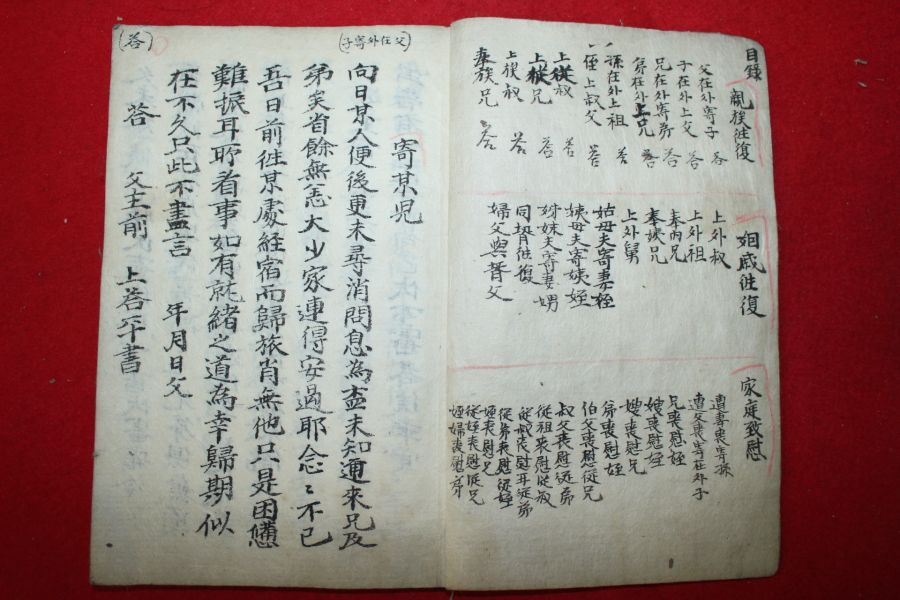 目錄
親族徃復
父在外寄子 答
子在外上父 答
兄在外寄弟 答
弟在外上兄 答
孫在外上祖 答
侄上叔父 答
上從叔
上從兄 答
上族叔 答
奉族兄 答
姻戚徃復
上外叔
上外祖
奉內兄
奉姨兄
上外舅
姑母夫寄妻侄
姨母夫寄姨侄
姊妹夫寄妻甥
同壻徃復
婦父與壻父
家庭致慰
遭妻喪寄孫
遭父喪寄在外子
兄喪慰侄
嫂喪慰侄
嫂喪慰兄
弟喪慰侄
伯父喪慰從兄
叔父喪慰從弟
從祖喪慰從叔
從叔喪慰再從弟
從弟喪慰從侄
侄喪慰兄
從侄喪慰從兄
侄婦喪慰弟
(父在外寄子)
寄某児
向日某人便後更未尋消問息為盃未知通來兄及
弟矣省餘無恙大少家連得安過耶念〻不已
吾日前徃某處経宿而歸旅肖無他只是困憊
難振耳所看事如有就緒之道為幸歸期似
在不久只此不盡言 年月日父
(答)
答 父主前 上答平書